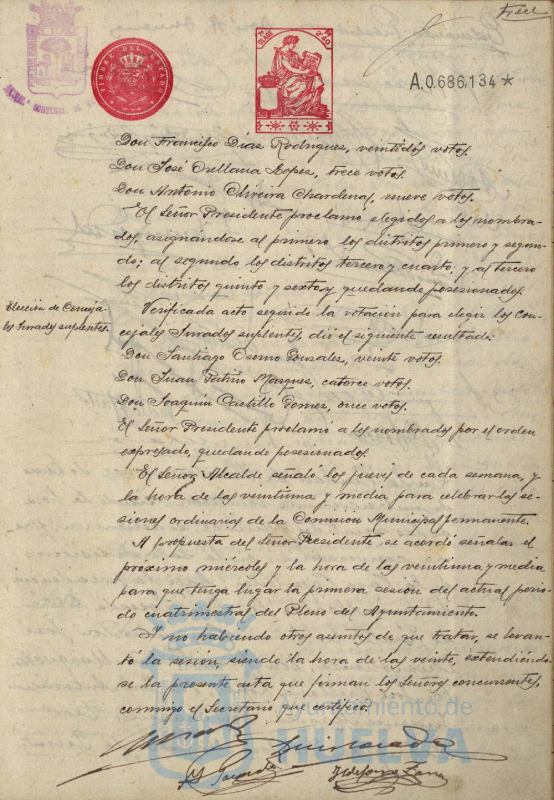 trece
TIMBRE DEL ESTADO
A.0.686,134*
Don Francisco Díaz Rodriguez, veintidós votos.
Don José Orellana Lopez, trece votos.
Don Antonio Oliveira Chardenal, nueve votos.
El Señor Presidente proclamó elegidos a los nombra-
dos, asignándose al primero los distritos primero y segun-
do; al segundo los distritos tercero y cuarto; y al tercero
los distritos quinto y sexto, y quedando posesionados.
Elección de Conceja-
les Jurados suplentes.
Verificada acto seguido la votación para elegir los Con-
cejales Jurados suplentes, dió el siguiente resultado:
Don Santiago Osorno Gonzalez, veinte votos.
Don Juan Patiño Marquez, catorce votos.
Don Joaquin Castillo Gomez, once votos.
El Señor Presidente proclamó a los nombrados por el orden
expresado, quedando posesionados.
El Señor Alcalde señaló los jueves de cada semana, y
la hora de las veintiuna y media para celebrar las se-
siones ordinarias de la Comision Municipal permanente.
A propuesta del Señor Presidente se acordó señalar el
próximo miércoles y la hora de las veintiuna y media
para que tenga lugar la primera sesión del actual perio-
do cuatrimestral del Pleno del Ayuntamiento.
Y no habiendo otros asuntos de que tratar, se levan-
tó la sesión, siendo la hora de las veinte, extendiéndo-
se la presente acta que firman los Señores concurrentes,
conmigo el Secretario, que certifico.
Ayuntamiento de
HUELVA